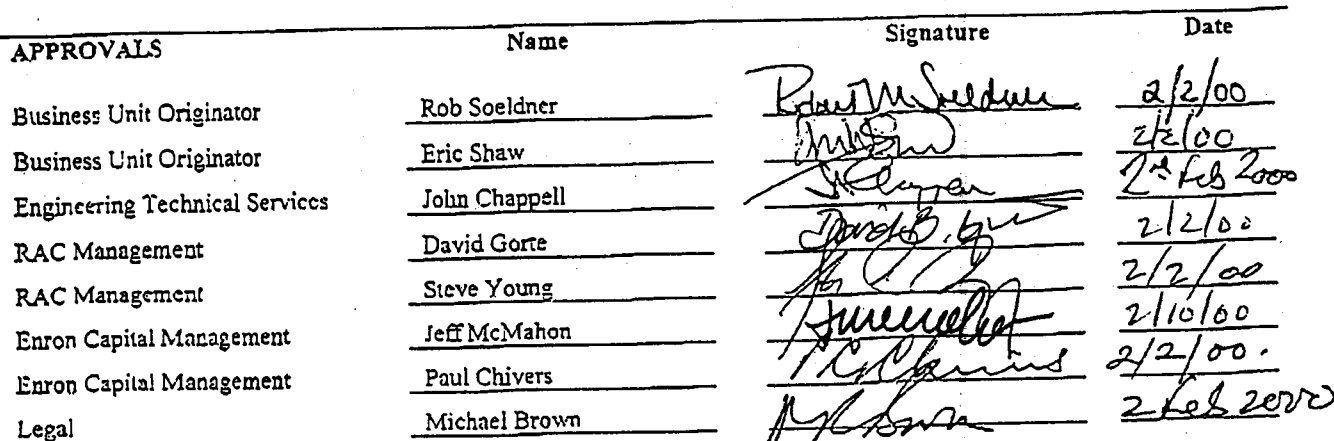 APPROVALS Name Signature Date
Business Unit Originator Rob Soeldner Robert M Soeldner 2/2/00
Business Unit Originator Eric Shaw 2/2/00
Engineering Technical Services John Chappell 2nd Feb 2000
RAC Management David Gorte David B. 2/2/00
RAC Management Steve Young 2/2/00
Enron Capital Management Jeff McMahon 2/10/00
Enron Capital Management Paul Chivers 2/2/00.
Legal Michael Brown 2 Feb 2000